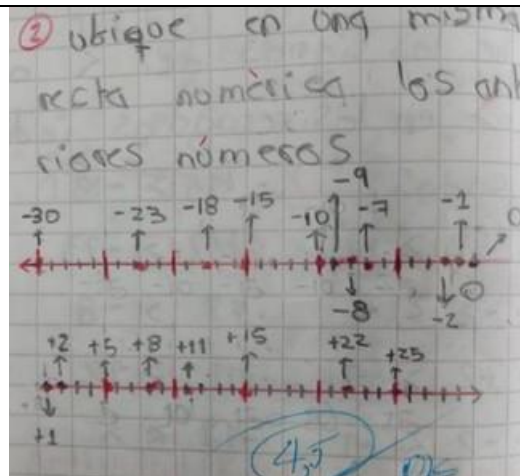 ② ubique en una mism
recta numèrica los ant
riores números
-9
-30 -23 -18 -15 -10 -7 -1 0
-8 -2
+2 +5 +8 +11 +15 +22 +25
+1
4,5